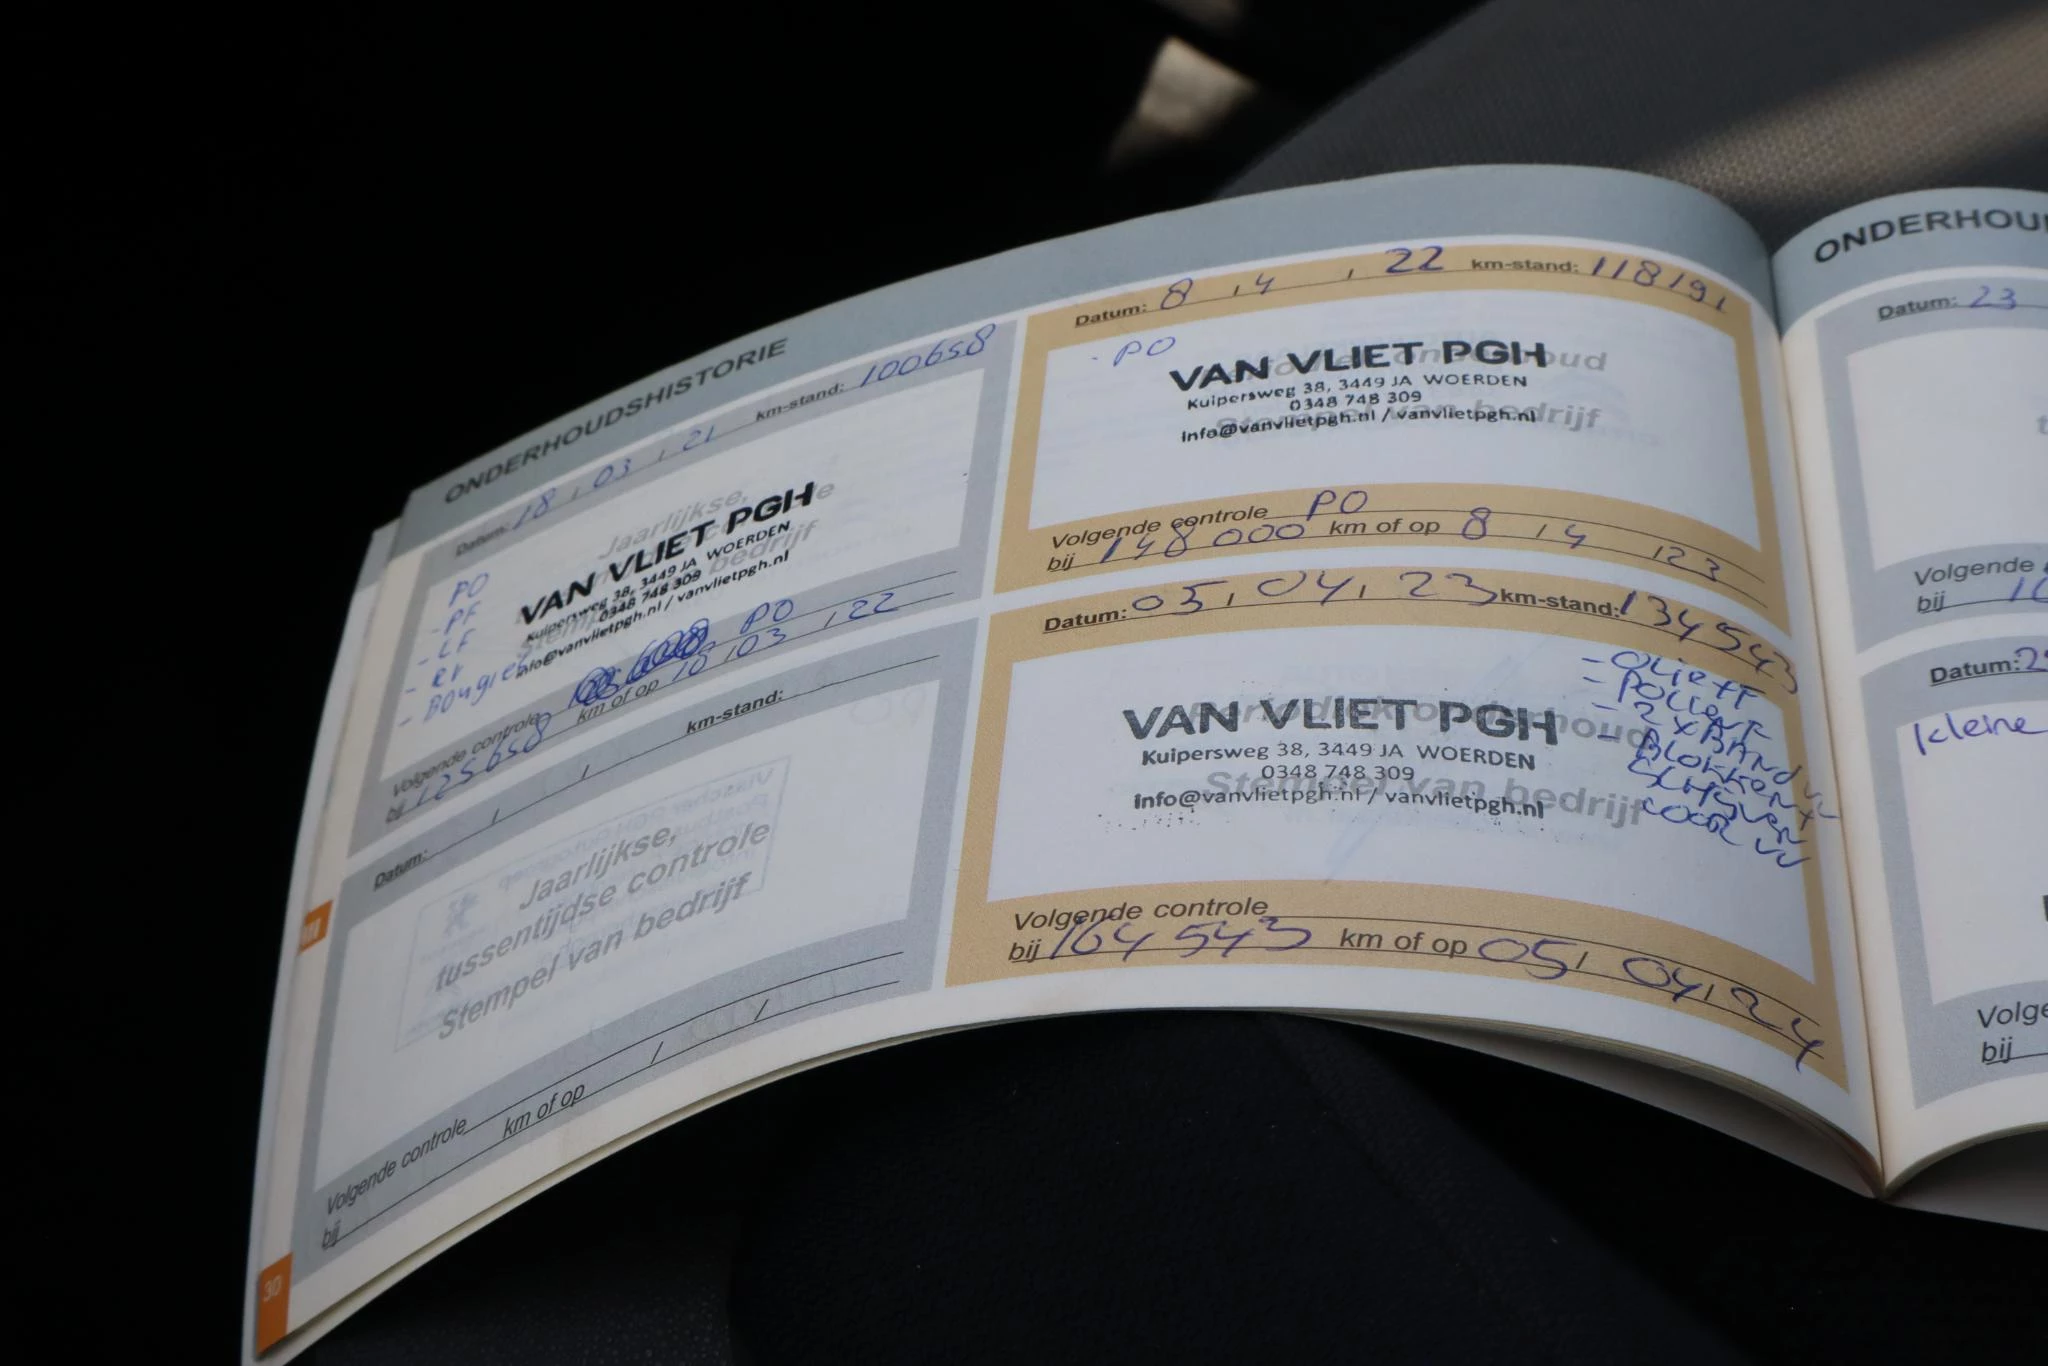 ONDERHOUDSHISTORIE
Datum: 18 , 03 , 21 km-stand: 100658
PO
- PF
- LF
- Bougies
VAN VLIET PGH
Kuipersweg 38, 3449 JA WOERDEN
0348 748 309
info@vanvlietpgh.nl / vanvlietpgh.nl
Volgende controle PO
bij 125658 km of op 18 / 03 / 22
Datum: / / km-stand:
Jaarlijkse,
tussentijdse controle
Stempel van bedrijf
Volgende controle
bij km of op / /
30
Datum: 8 , 4 , 22 km-stand: 118191
- PO
VAN VLIET PGH
Kuipersweg 38, 3449 JA WOERDEN
0348 748 309
info@vanvlietpgh.nl / vanvlietpgh.nl
Stempel van bedrijf
Volgende controle PO
bij 148000 km of op 8 / 4 / 23
Datum: 05 , 04 , 23 km-stand: 134543
- OLIE+F
- POLLENF
- 2 x BAND VV
- BLOKKEN +
SCHIJVEN
VOOR VV
VAN VLIET PGH
Periodiek onderhoud
Kuipersweg 38, 3449 JA WOERDEN
0348 748 309
info@vanvlietpgh.nl / vanvlietpgh.nl
Stempel van bedrijf
Volgende controle
bij 164543 km of op 05 / 04 , 24
ONDERHOU
Datum: 23
Volgende
bij
Datum: 2
Kleine
Volge
bij